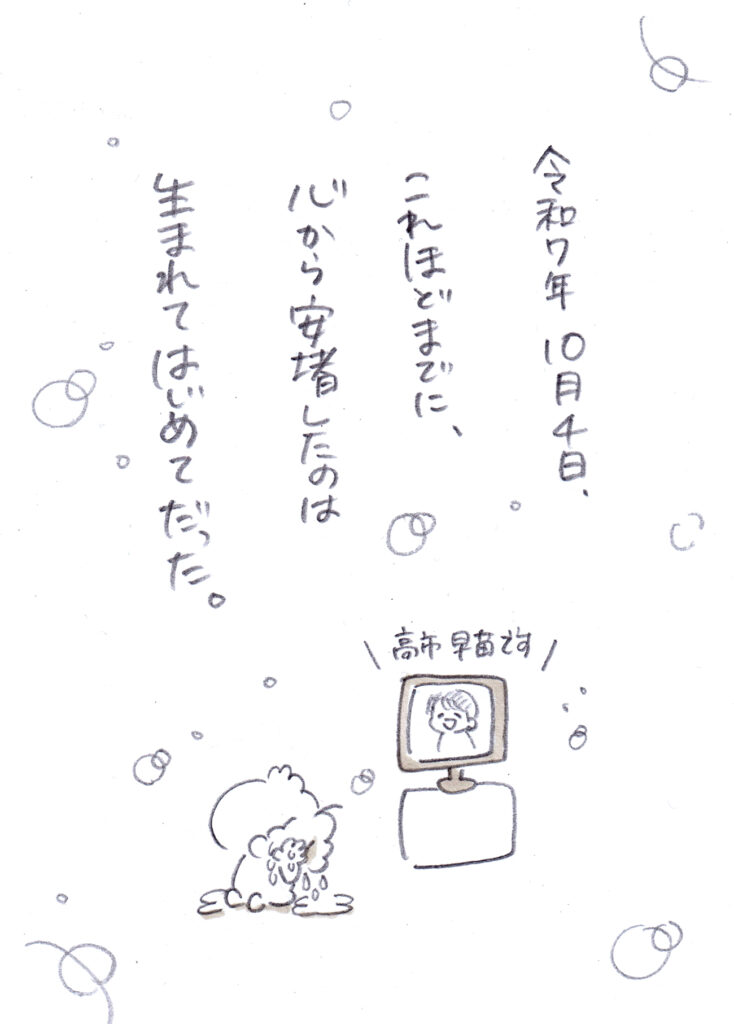 令和7年10月4日、
これほどまでに、
心から安堵したのは
生まれてはじめてだった。
高市早苗です